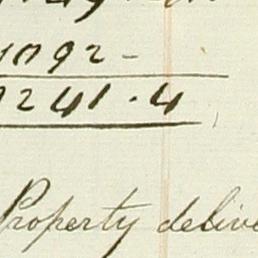 1092 -
9241 . 4
Property delive